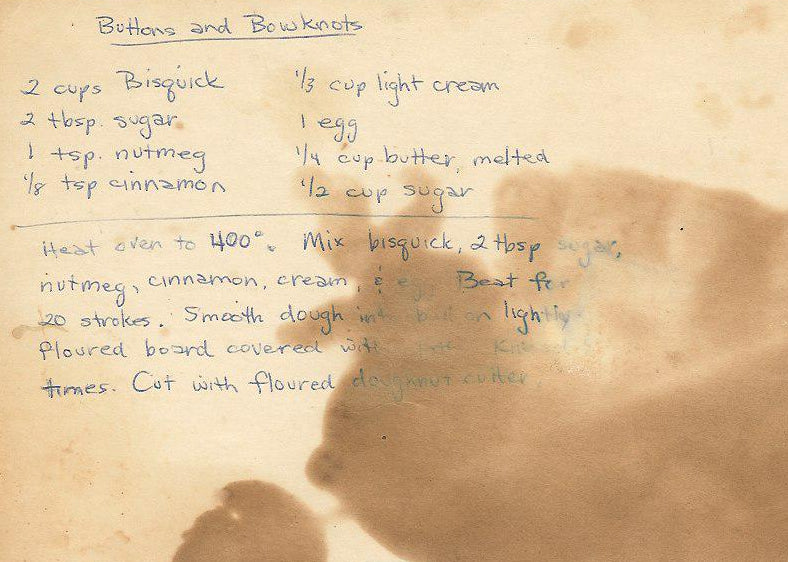 Buttons and Bowknots
2 cups Bisquick
2 tbsp. sugar
1 tsp. nutmeg
1/8 tsp cinnamon
1/3 cup light cream
1 egg
1/4 cup butter, melted
1/2 cup sugar
Heat oven to 400°. Mix bisquick, 2 tbsp sugar,
nutmeg, cinnamon, cream, & egg. Beat for
20 strokes. Smooth dough into ball on lightly
floured board covered with
times. Cut with floured doughnut cutter.